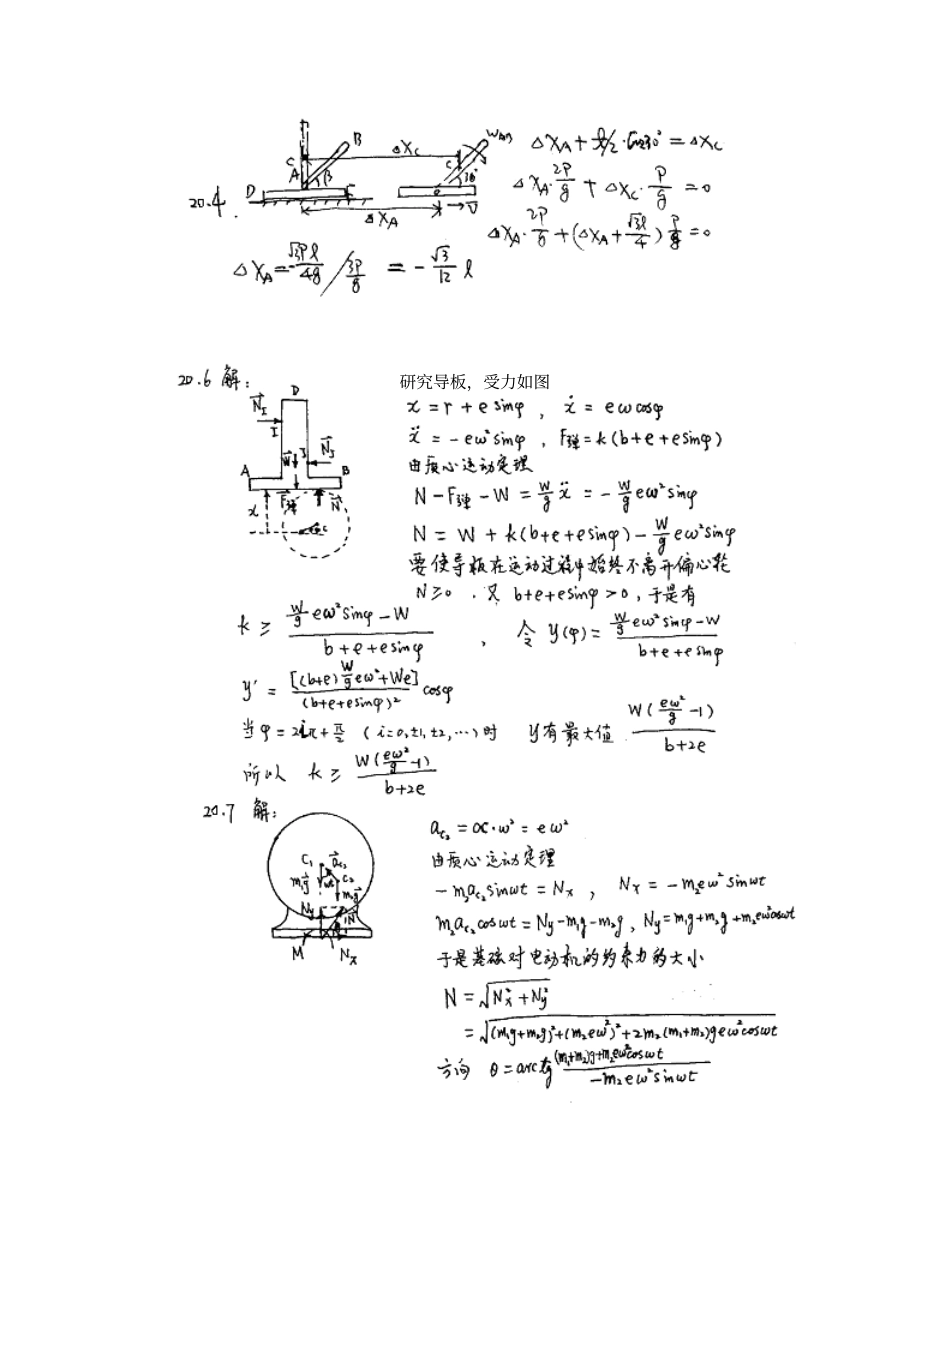 20.4
D C A B β ΔX_C ΔX_A C 30° → v
ΔX_A + l/2·cos30° = ΔX_C
ΔX_A·2P/g + ΔX_C·P/g = 0
ΔX_A·2P/g + (ΔX_A + √3l/4)P/g = 0
ΔX_A = -√3Pl/4g / 3P/g = -√3/12 l
20.6 解:
研究导板, 受力如图
D N_I I N_J J W A B F弹 N x C
x = r + e sinφ , ẋ = eω cosφ
ẍ = -eω²sinφ , F弹 = k(b+e+esinφ)
由质心运动定理
N - F弹 - W = W/g ẍ = - W/g eω²sinφ
N = W + k(b+e+esinφ) - W/g eω²sinφ
要使导板在运动过程中始终不离开偏心轮
N≥0 . 又 b+e+esinφ>0 , 于是有
k ≥ (W/g eω²sinφ - W)/(b+e+esinφ) , 令 y(φ) = (W/g eω²sinφ - W)/(b+e+esinφ)
y' = [(b+e)W/g eω² + We]/(b+e+esinφ)² cosφ
当 φ = 2iπ + π/2 (i=0,±1,±2,…)时 y有最大值 W(eω²/g -1)/(b+2e)
所以 k ≥ W(eω²/g -1)/(b+2e)
20.7 解:
C₁ a_c₂ ωt C₂ m₁g m₂g N_y N θ M N_x
a_c₂ = OC·ω² = eω²
由质心运动定理
-m₂a_c₂sinωt = N_x , N_x = -m₂eω²sinωt
m₂a_c₂cosωt = N_y - m₁g - m₂g , N_y = m₁g + m₂g + m₂eω²cosωt
于是基础对电动机的约束力的大小
N = √(N_x² + N_y²)
= √((m₁g+m₂g)² + (m₂eω²)² + 2m₂(m₁+m₂)geω²cosωt)
方向 θ = arctg ((m₁+m₂)g + m₂eω²cosωt)/(-m₂eω²sinωt)